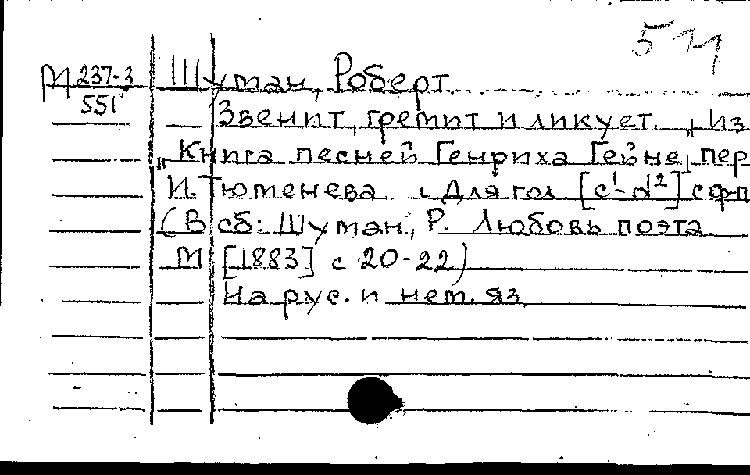 5М
М 237-3 Шуман, Роберт
551 Звенит, гремит и ликует. „Из
„Книга песней Генриха Гейне„ пер
И. Тюменева. Для гол [c¹-d²] с фп
(В сб: Шуман, Р. Любовь поэта
М [1883] с 20-22)
На рус. и нем. яз.